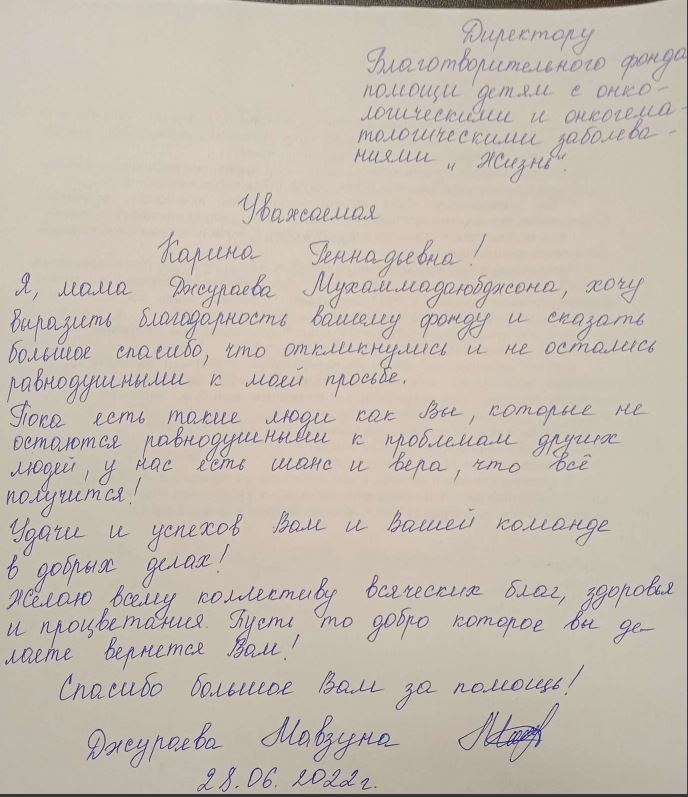 Директору
Благотворительного фонда
помощи детям с онко-
логическими и онкогема-
тологическими заболева-
ниями „Жизнь".
Уважаемая
Карина Геннадьевна!
Я, мама Джураева Мухаммадаюбджона, хочу
выразить благодарность вашему фонду и сказать
большое спасибо, что откликнулись и не остались
равнодушными к моей просьбе.
Пока есть такие люди как Вы, которые не
остаются равнодушными к проблемам других
людей, у нас есть шанс и вера, что всё
получится!
Удачи и успехов Вам и Вашей команде
в добрых делах!
Желаю всему коллективу всяческих благ, здоровья
и процветания. Пусть то добро которое вы де-
лаете вернется Вам!
Спасибо большое Вам за помощь!
Джураева Мавзуна
28.06.2022г.